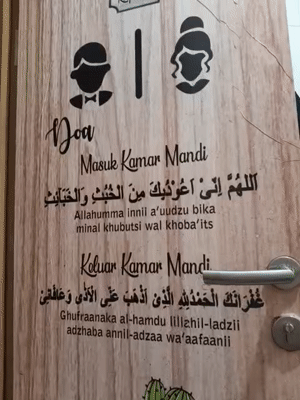 Doa
Masuk Kamar Mandi
اَللهُمَّ اِنِّىْ اَعُوْذُبِكَ مِنَ الْخُبُثِ وَالْخَبَآئِثِ
Allahumma innii a'uudzu bika
minal khubutsi wal khoba'its
Keluar Kamar Mandi
غُفْرَانَكَ الْحَمْدُ لِلّٰهِ الَّذِىْ اَذْهَبَ عَنِّى الْاَذٰى وَعَافَانِىْ
Ghufraanaka al-hamdu lillzhil-ladzii
adzhaba annil-adzaa wa'aafaanii